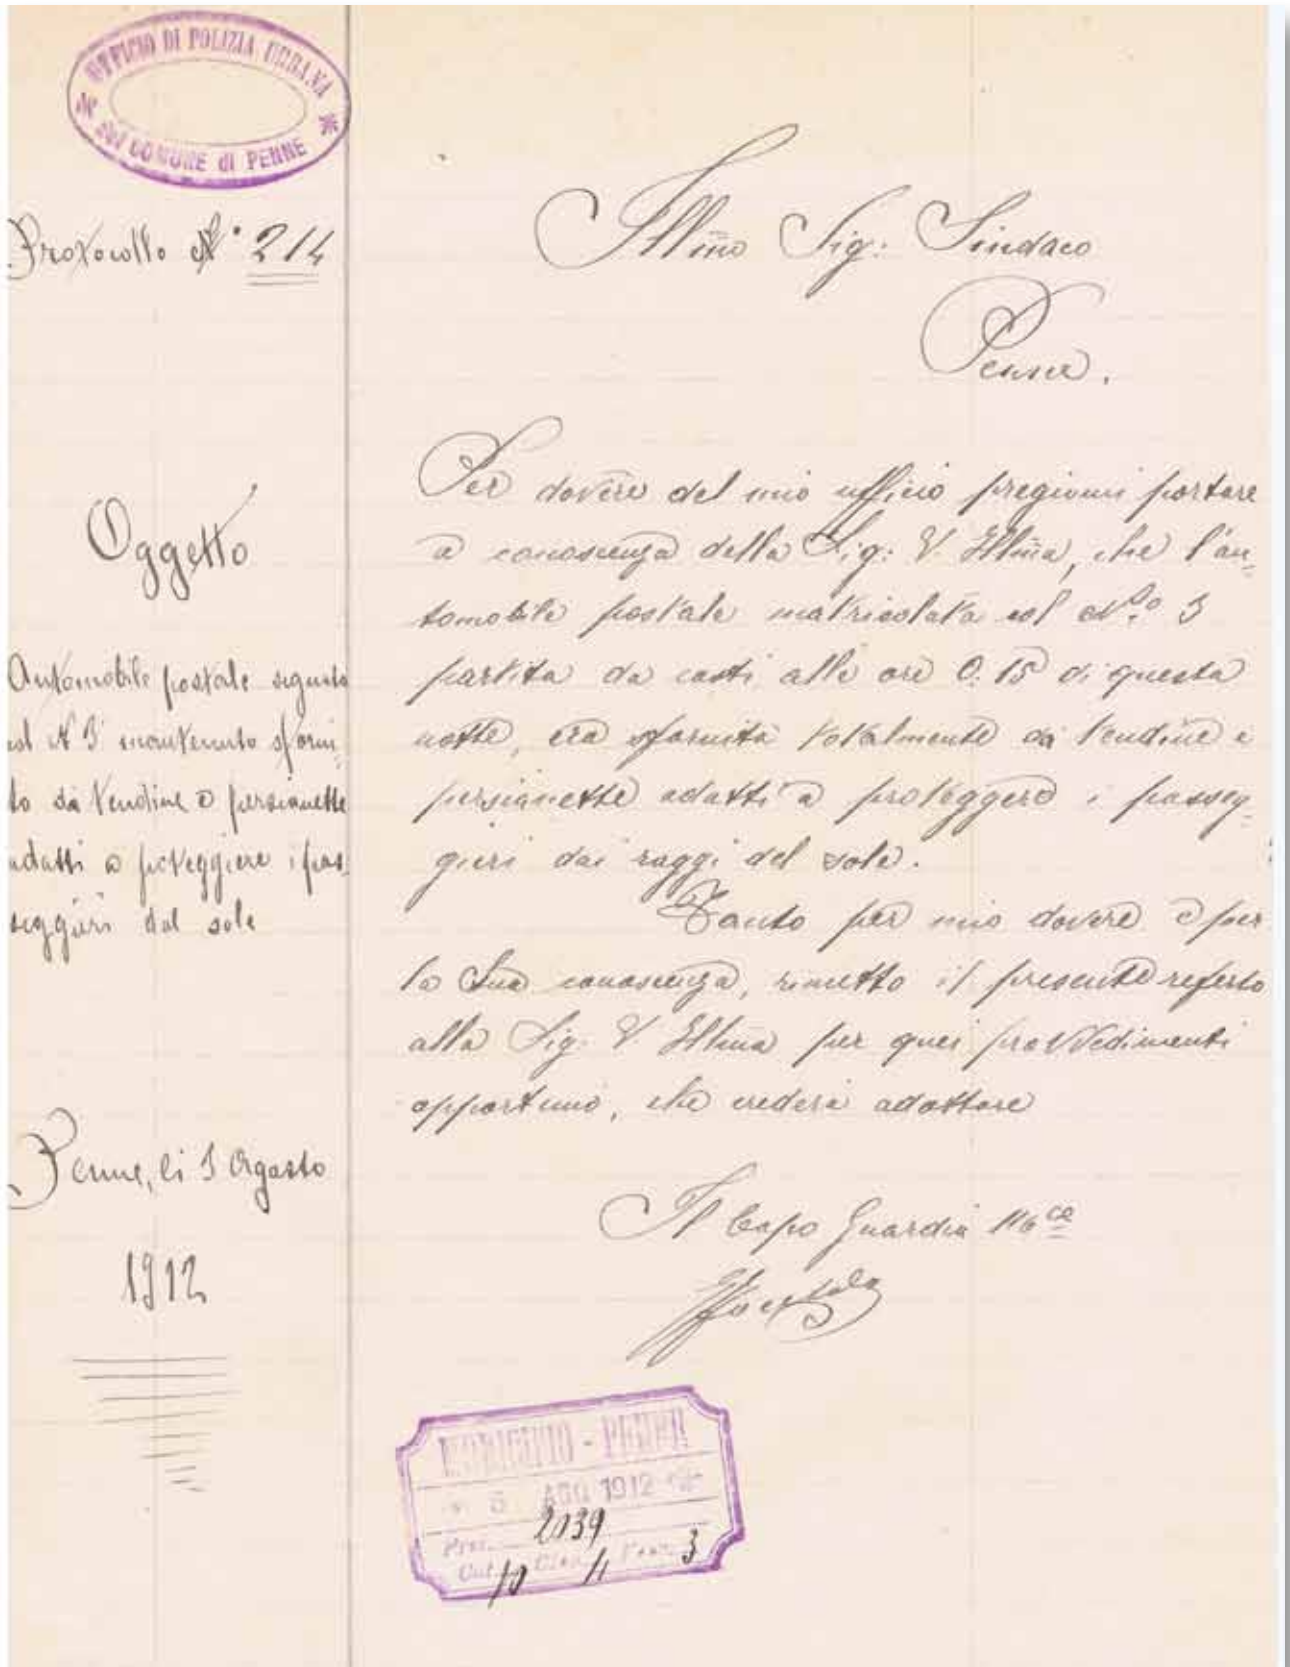 UFFICIO DI POLIZIA URBANA
del COMUNE di PENNE
Protocollo N° 214
Oggetto
Automobile postale segnata
col N 3 mantenuto sforni-
to da tendine e persianette
adatti a proteggiere i pas-
seggieri dal sole
Penne, li 5 Agosto
1912
Illmo Sig: Sindaco
Penne.
Per dovere del mio ufficio pregiomi portare
a conoscenza della Sig: V. Illma, che l'au-
tomobile postale matricolata col N.º 3
partita da costì alle ore 0.15 di questa
notte, era sfornita totalmente da tendine e
persianette adatti a proteggere i passeg-
gieri dai raggi del sole.
Tanto per mio dovere e per
la Sua conoscenza, rimetto il presente referto
alla Sig. V Illma per quei provvedimenti
opportuno, che crederà adottare
Il Capo Guardia
MUNICIPIO - PENNE
5 AGO 1912
Prot. 2039
Cat. 10 Clas. 4 Fasc. 3